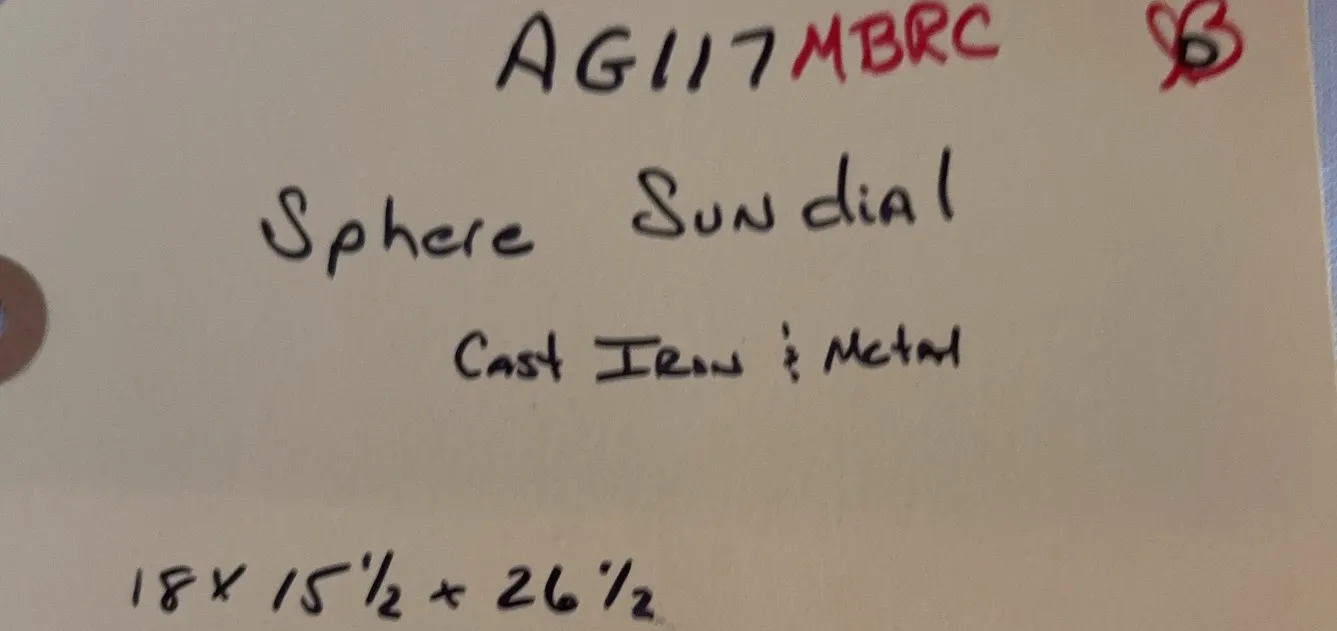 AG117MBRC
Sphere Sundial
Cast Iron & Metal
18 x 15 1/2 x 26 1/2